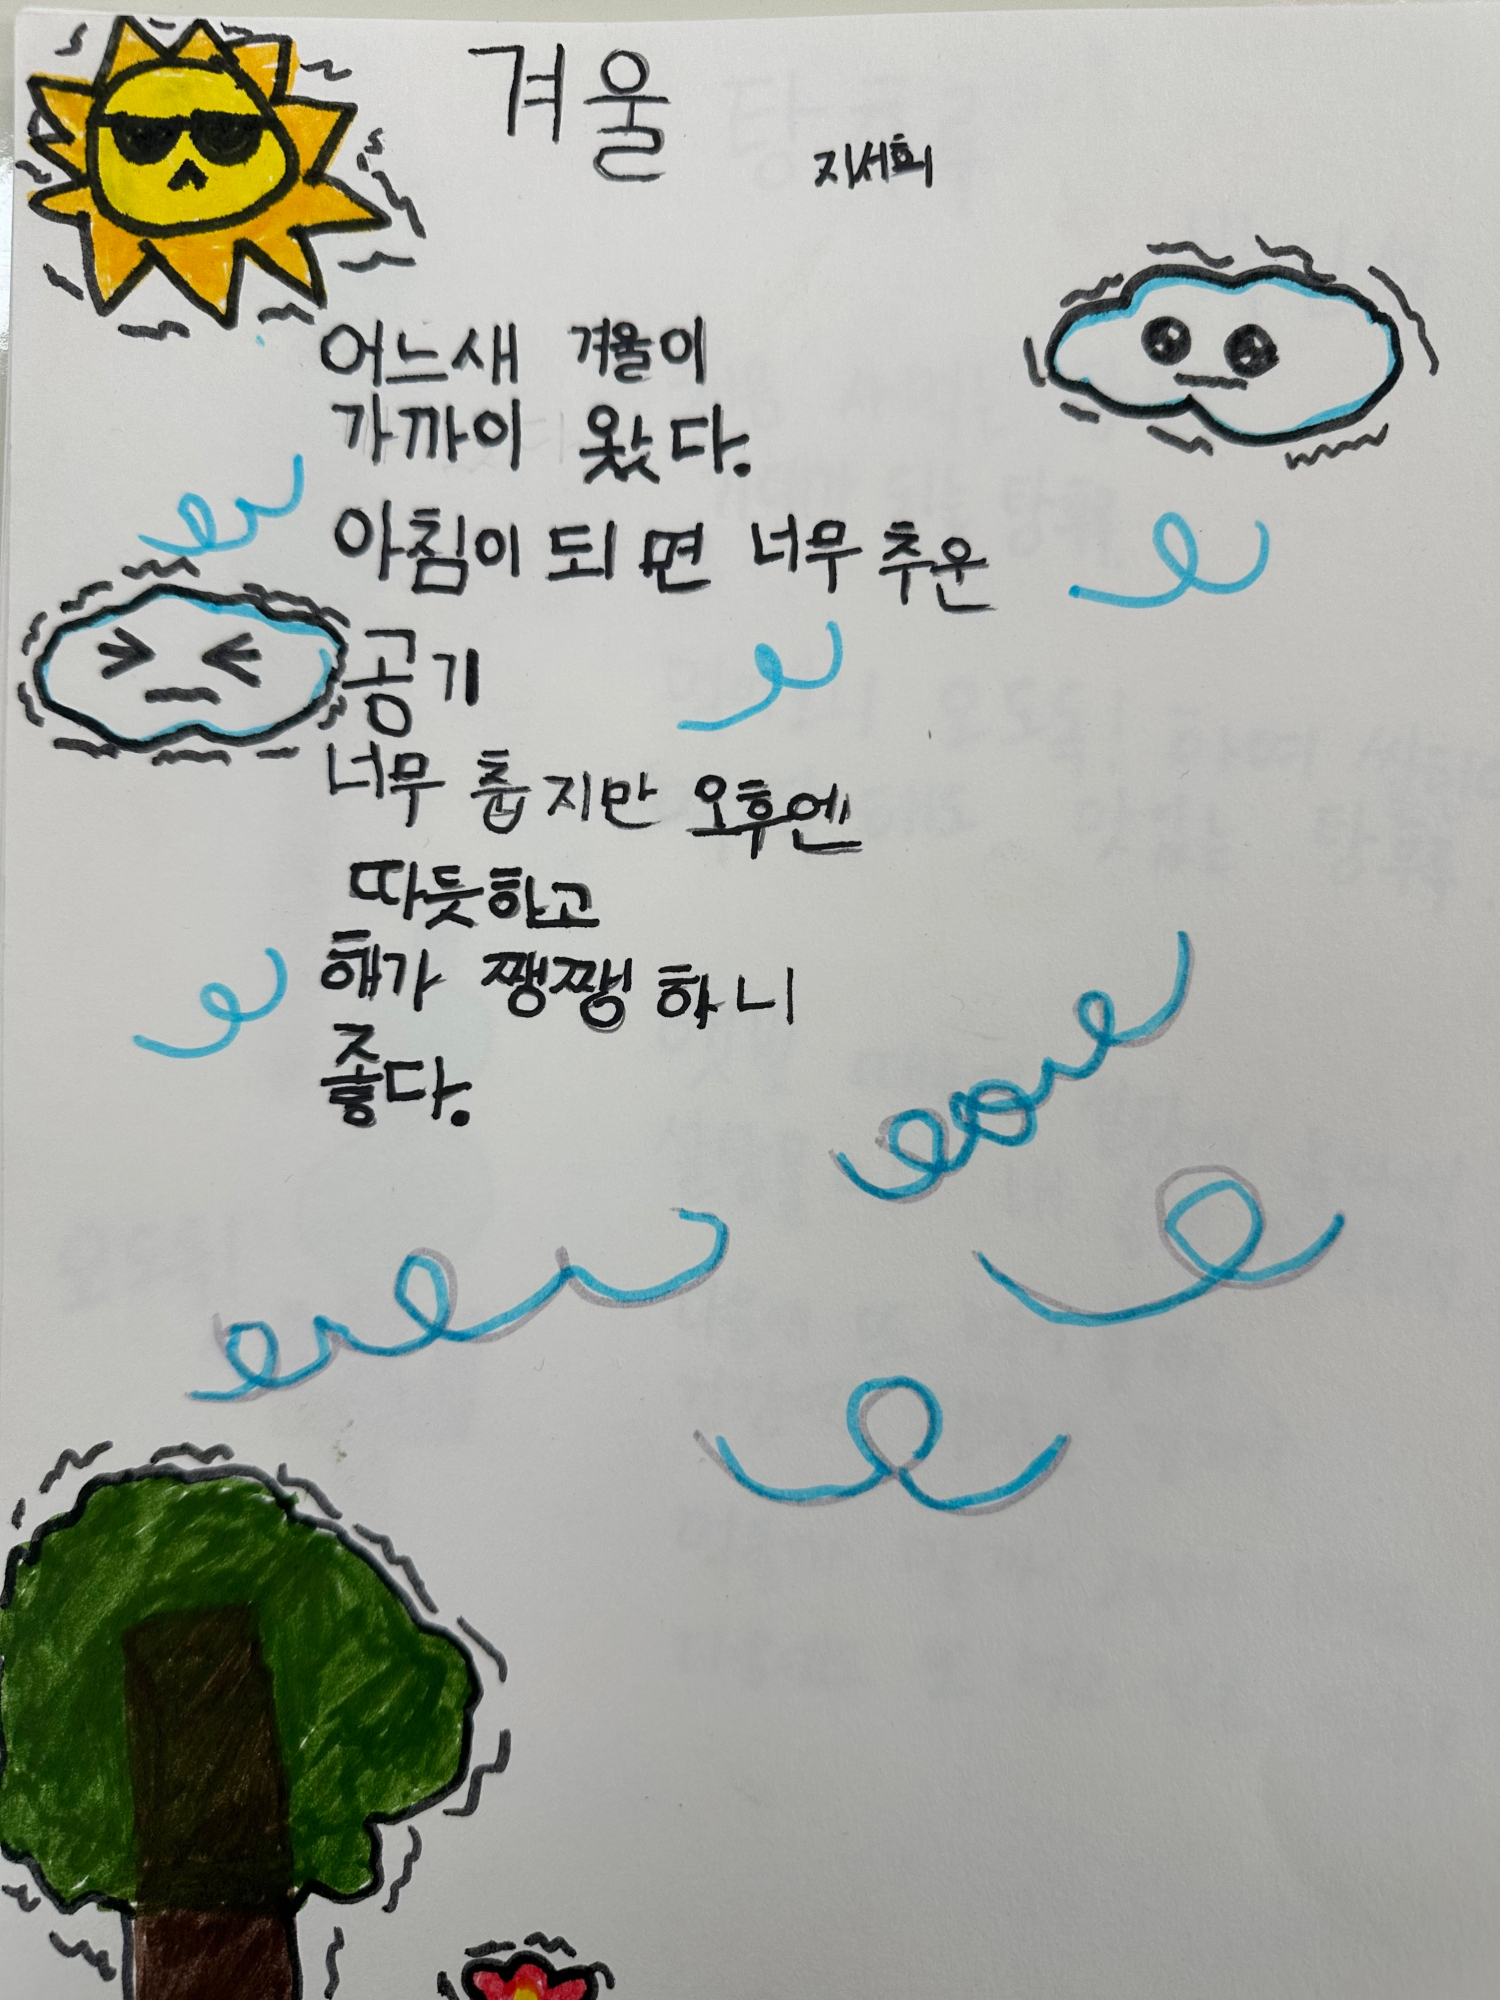 겨울
지서희
어느새 겨울이
가까이 왔다.
아침이 되면 너무 추운
공기
너무 춥지만 오후엔
따듯하고
해가 쨍쨍하니
좋다.